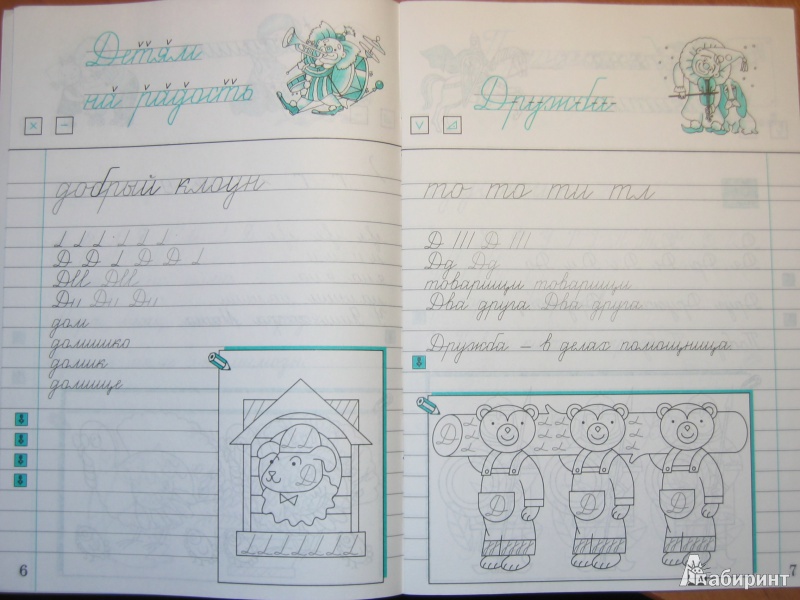 Детям
на радость
добрый клоун
Д Д Д Д
Ди Ди Ди
дом
домишко
домик
домище
6
Дружба
то то ти тл
Д Д
Дд Дд
товарищи товарищи
Два друга Два друга
Дружба – в делах помощница
Д
Д Д Д
7
Лабиринт